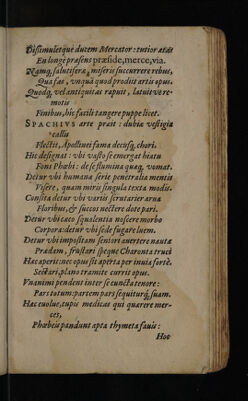 Dissimuletque ducem Mercator: tutior ætas
En longe præsens præside, merce, via.
Namq, salutiferæ, miseris succurrere rebus,
Quæ fas, vnquā quod prodit artis opus.
Quodq, vel antiquitas rapuit, latuit ve re-
motis
Finibus, hic facili tangere puppe licet.
SPACHIVS arte præit: dubiæ vestigia
callis
Flectit, Apollinei fama decusq, chori.
Hic designat: vbi vasto se emergat hiatu
Fons Phœbi: de se flumina quæq, vomat.
Detur vbi humanæ serie penetralia mentis
Visere, quam miris singula texta modis.
Consita detur vbi variis scrutarier arua
Floribus, & succos nectere dote pari.
Detur vbi cæco squalentia noscere morbo
Corpora: detur vbi sede fugare luem.
Detur vbi impositam seniori auertere nautæ
Prædam, frustari speque Charonta truci
Hac aperit: nec opus sit aperta per inuia fortè.
Sectari, plano tramite currit opus.
Vnanimi pendent inter se cuncta tenore:
Pars totum: partem pars sequiturq, suam.
Hac euolue, tupis medicas qui quærere mer-
ces,
Phœbeis pandunt apta thymeta fauis:
Hoc